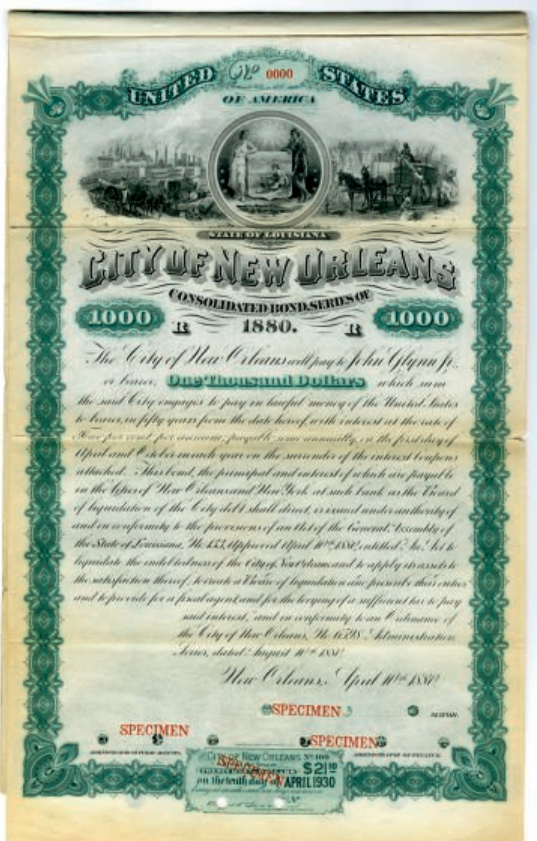 UNITED No 0000 STATES
OF AMERICA
STATE OF LOUISIANA
CITY OF NEW ORLEANS
CONSOLIDATED BOND, SERIES OF
1000 R 1880. R 1000
The City of New Orleans will pay to John Glynn Jr.
or bearer, One Thousand Dollars which sum
the said City engages to pay in lawful money of the United States
to bearer, in fifty years from the date hereof, with interest at the rate of
per cent per annum, payable semi annually, on the first day of
April and October in each year on the surrender of the interest coupons
attached. This bond, the principal and interest of which are payable
in the Cities of New Orleans and New York at such bank as the Board
of liquidation of the City debt shall direct, is issued under authority of
and in conformity to the provisions of an Act of the General Assembly of
the State of Louisiana, No 133, Approved April 10th 1880, entitled An Act to
liquidate the indebtedness of the City of New Orleans and to apply its assets to
the satisfaction thereof, to create a Board of liquidation and prescribe their duties
and to provide for a fiscal agent and for the levying of a sufficient tax to pay
said interest, and in conformity to an Ordinance of
the City of New Orleans, No 6798 Administration
Series, dated August 10th 1880
New Orleans, April 10th 1880
SPECIMEN MAYOR.
SPECIMEN SPECIMEN
CITY OF NEW ORLEANS No 100
SPECIMEN $21
on the tenth day of APRIL 1930